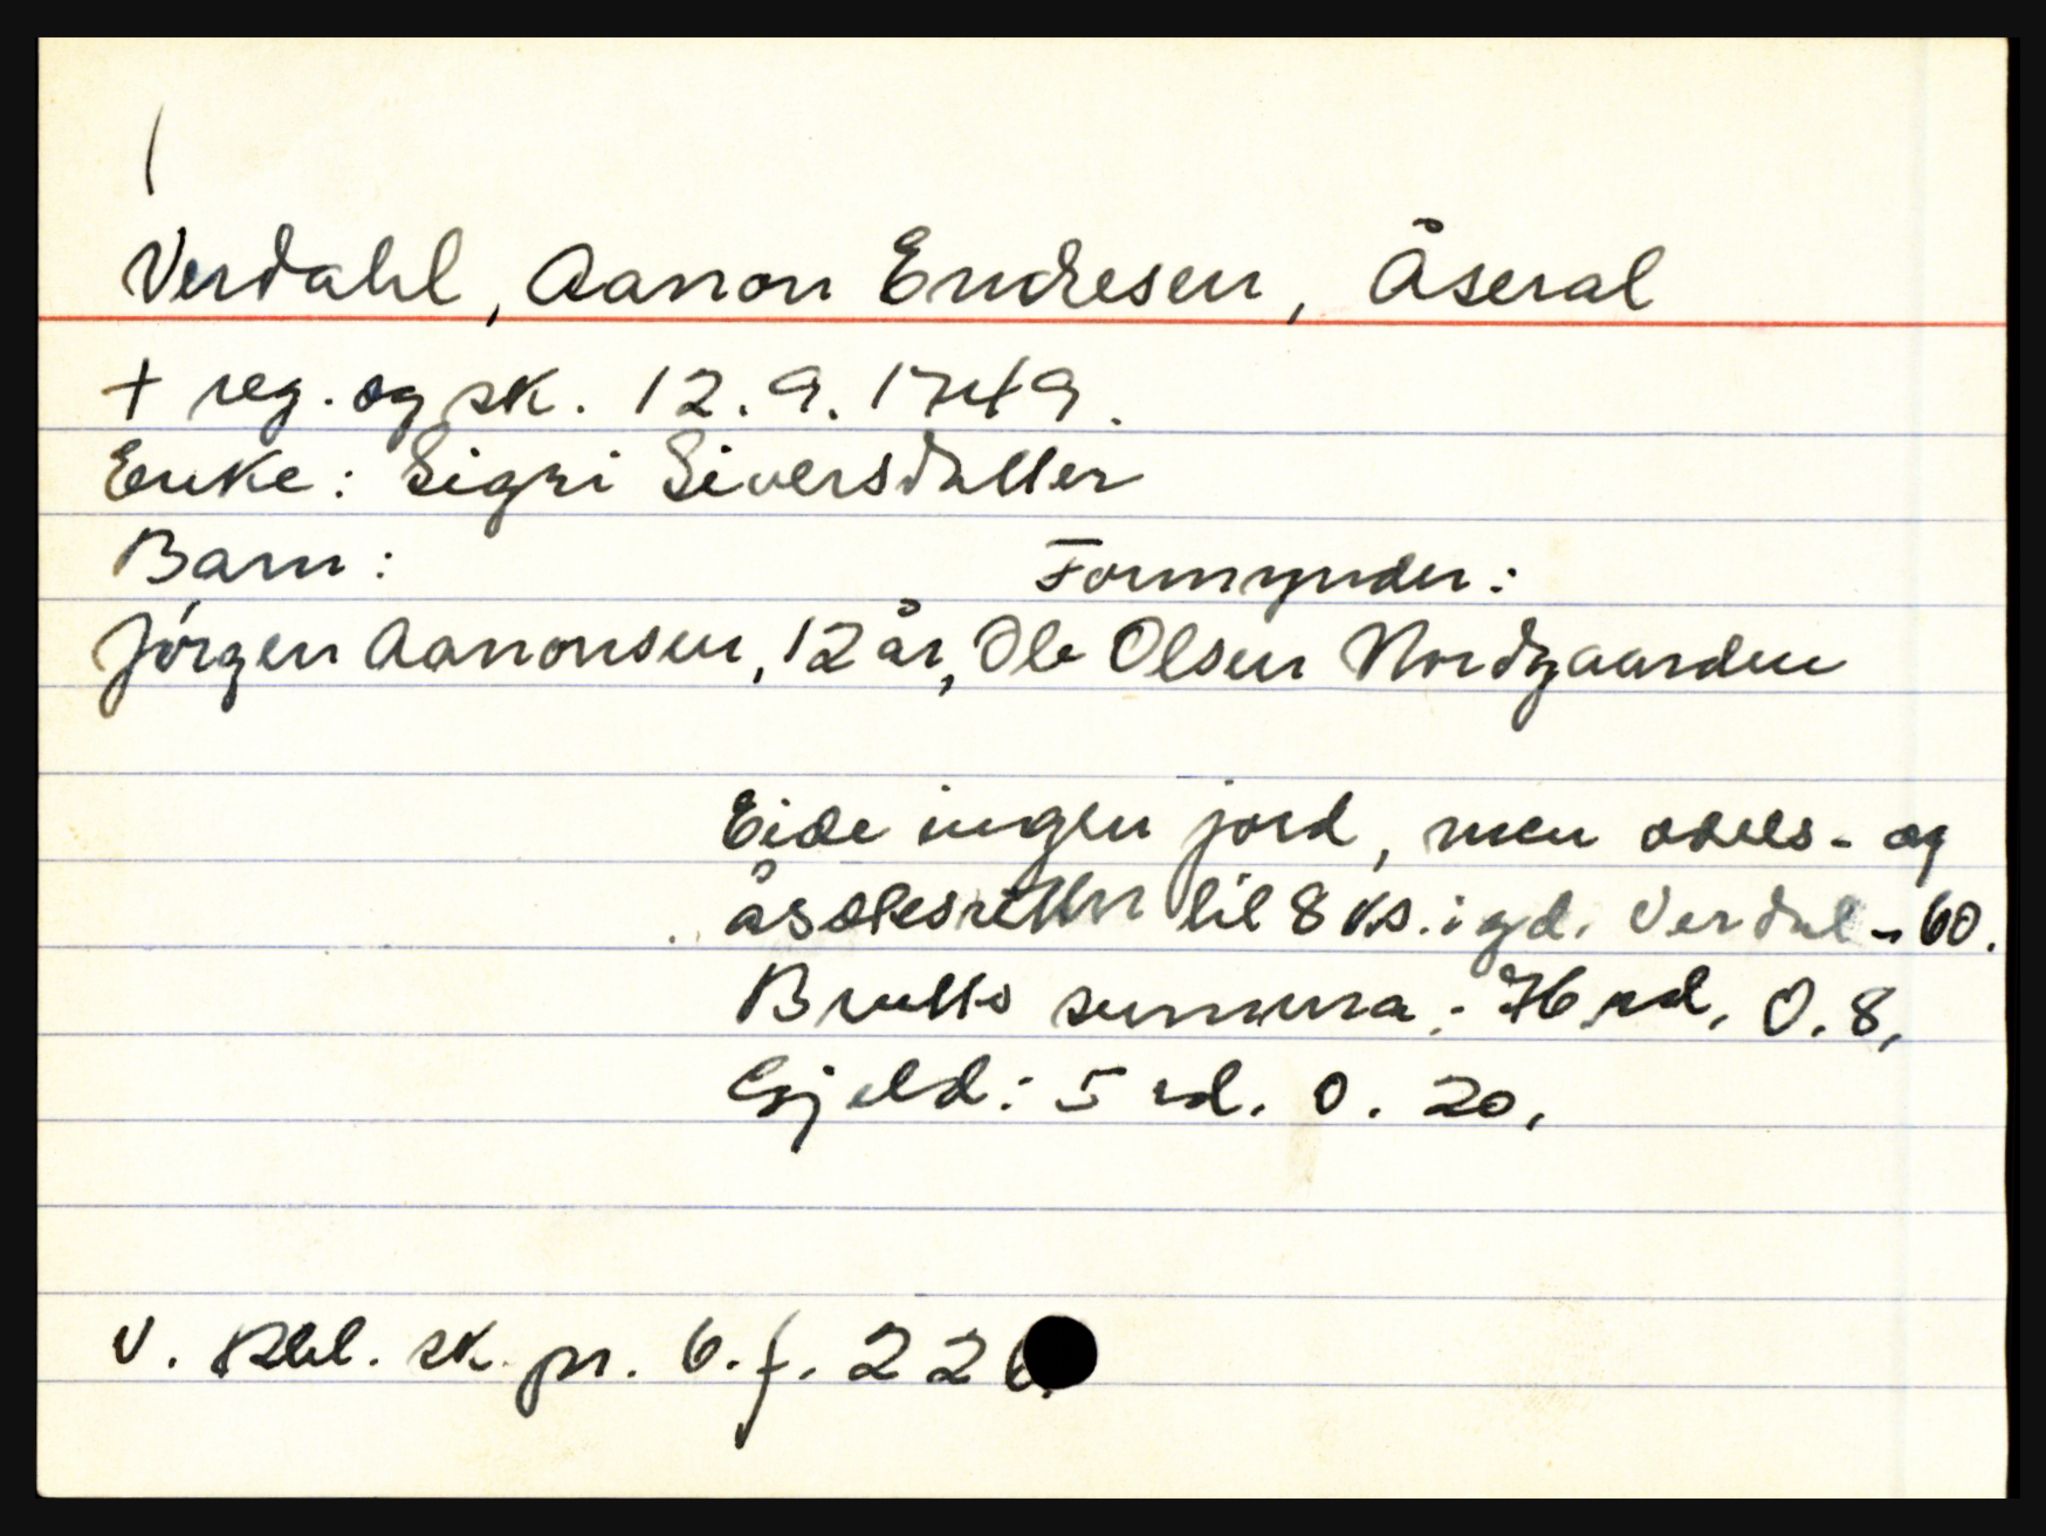 Verdahl, Aanon Endresen, Åseral
+ reg. og sk. 12.9.1749.
Enke: Sigri Siversdatter
Barn: Formynder:
Jörgen Aanonsen, 12 år, Ole Olsen Nordgaarden
Eide ingen jord, men odels- og
åsetesretten til 8 ks. i gd. Verdal - 60.
Brutto summa: 76 rd. 0. 8.
Gjeld: 5 rd. 0. 20.
V. Rbl. sk. pr. 6. f.